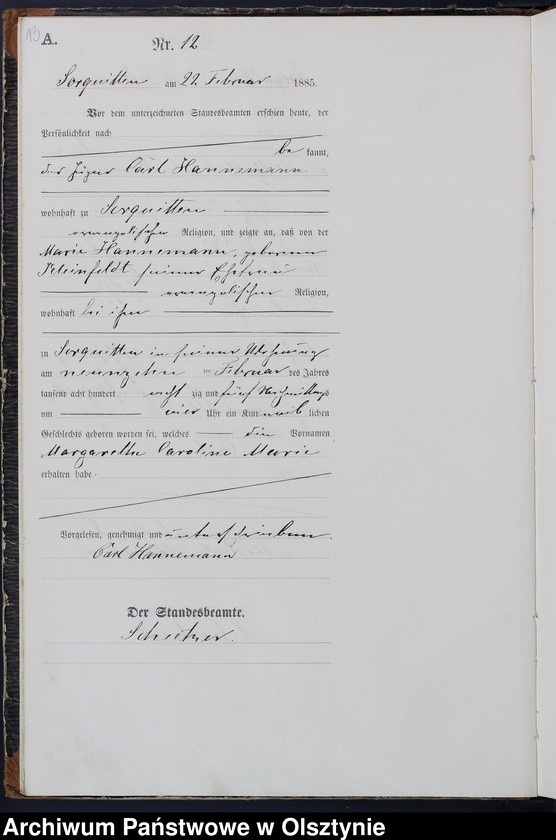 13 A.
Nr. 12
Sorquitten am 22 Februar 1885.
Vor dem unterzeichneten Standesbeamten erschien heute, der
Persönlichkeit nach
be kannt,
der Jäger Carl Hannemann
wohnhaft zu Sorquitten
evangelischer Religion, und zeigte an, daß von der
Marie Hannemann, geborenen
Kleinfeldt seiner Ehefrau
evangelischer Religion,
wohnhaft bei ihm
zu Sorquitten in seiner Wohnung
am neunzehn ten Februar des Jahres
tausend acht hundert acht zig und fünf Nachmittags
um vier Uhr ein Kind weib lichen
Geschlechts geboren worden sei, welches die Vornamen
Margarethe Caroline Marie
erhalten habe.
Vorgelesen, genehmigt und unterschrieben.
Carl Hannemann
Der Standesbeamte.
Archiwum Państwowe w Olsztynie